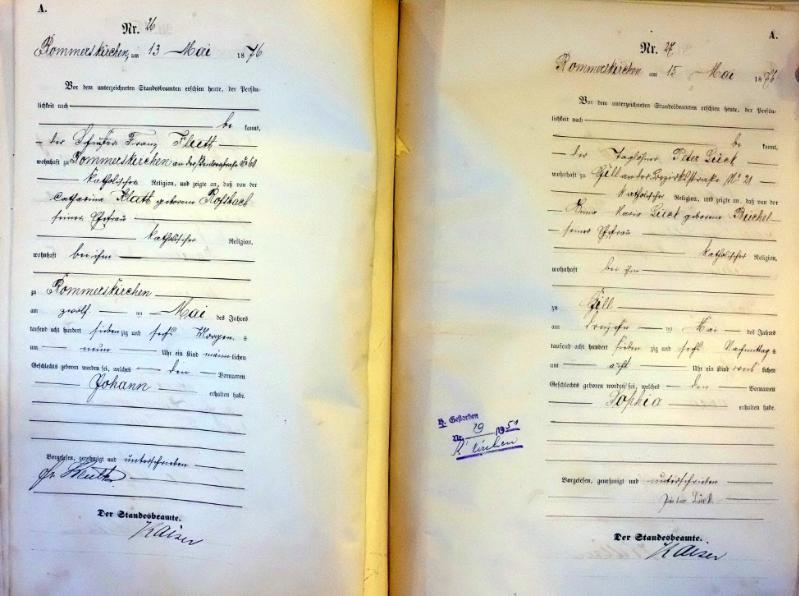 A.
Nr. 26
Rommerskirchen, am 13 Mai 1876
Vor dem unterzeichneten Standesbeamten erschien heute, der Persön-
lichkeit nach
be kannt,
der Franz
wohnhaft zu Rommerskirchen an der
katholischer Religion, und zeigte an, daß von der
Catharina geborenen Roßbach
seiner Ehefrau
katholischer Religion,
wohnhaft bei ihm
zu Rommerskirchen
am zwölf ten Mai des Jahres
tausend acht hundert sieben zig und sechs Morgens
um neun Uhr ein Kind männ lichen
Geschlechts geboren worden sei, welches den Vornamen
Johann erhalten habe.
Vorgelesen, genehmigt und unterschrieben
Der Standesbeamte.
Kaiser
A.
Nr. 27
Rommerskirchen am 15 Mai 1876
Vor dem unterzeichneten Standesbeamten erschien heute, der Persön-
lichkeit nach
be kannt,
der Taglöhner Peter Lück
wohnhaft zu Gill an der Bezirksstraße No 21
katholischer Religion, und zeigte an, daß von der
Anna Maria geborenen
seiner Ehefrau
katholischer Religion,
wohnhaft bei ihm
zu Gill
am ten Mai des Jahres
tausend acht hundert sieben zig und sechs Nachmittags
um acht Uhr ein Kind weib lichen
Geschlechts geboren worden sei, welches den Vornamen
Sophia erhalten habe.
Gestorben
Nr. 19
Vorgelesen, genehmigt und unterschrieben
Peter Lück
Der Standesbeamte.
Kaiser